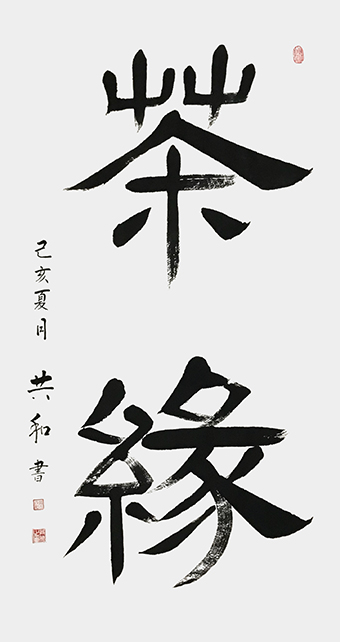 茶緣
己亥夏月 共和書